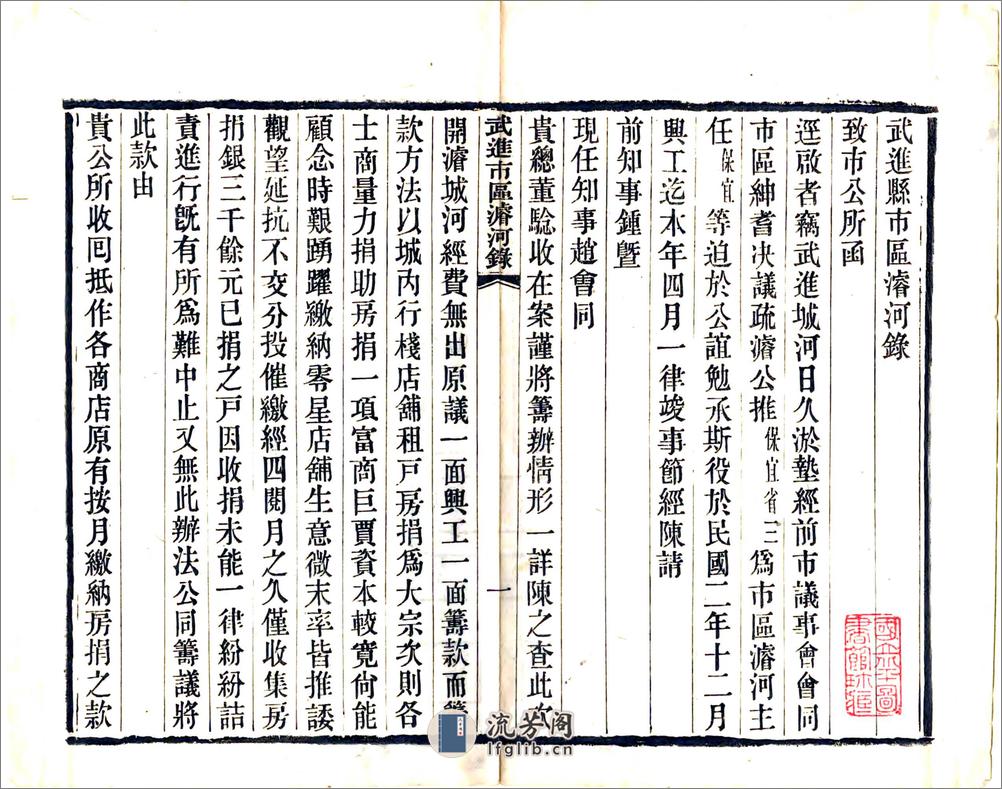 武進縣市區濬河錄
致市公所函
逕啟者竊武進城河日久淤墊經前市議事會會同
市區紳耆決議疏濬公推保宜省三爲市區濬河主
任保宜等迫於公誼勉承斯役於民國二年十二月
興工迄本年四月一律竣事節經陳請
前知事鍾曁
現任知事趙會同
貴總董驗收在案謹將籌辦情形一詳陳之查此次
武進市區濬河錄 一
開濬城河經費無出原議一面興工一面籌款而籌
款方法以城內行棧店舖租戸房捐爲大宗次則各
士商量力捐助房捐一項富商巨賈資本較寬尙能
顧念時艱踴躍繳納零星店舖生意微末率皆推諉
觀望延抗不交分投催繳經四閱月之久僅收集房
捐銀三千餘元已捐之戸因收捐未能一律紛紛詰
責進行旣有所爲難中止又無此辦法公同籌議將
此款由
貴公所收回抵作各商店原有按月繳納房捐之款
國立北平圖
書館珍藏
流芳阁
lfglib.cn